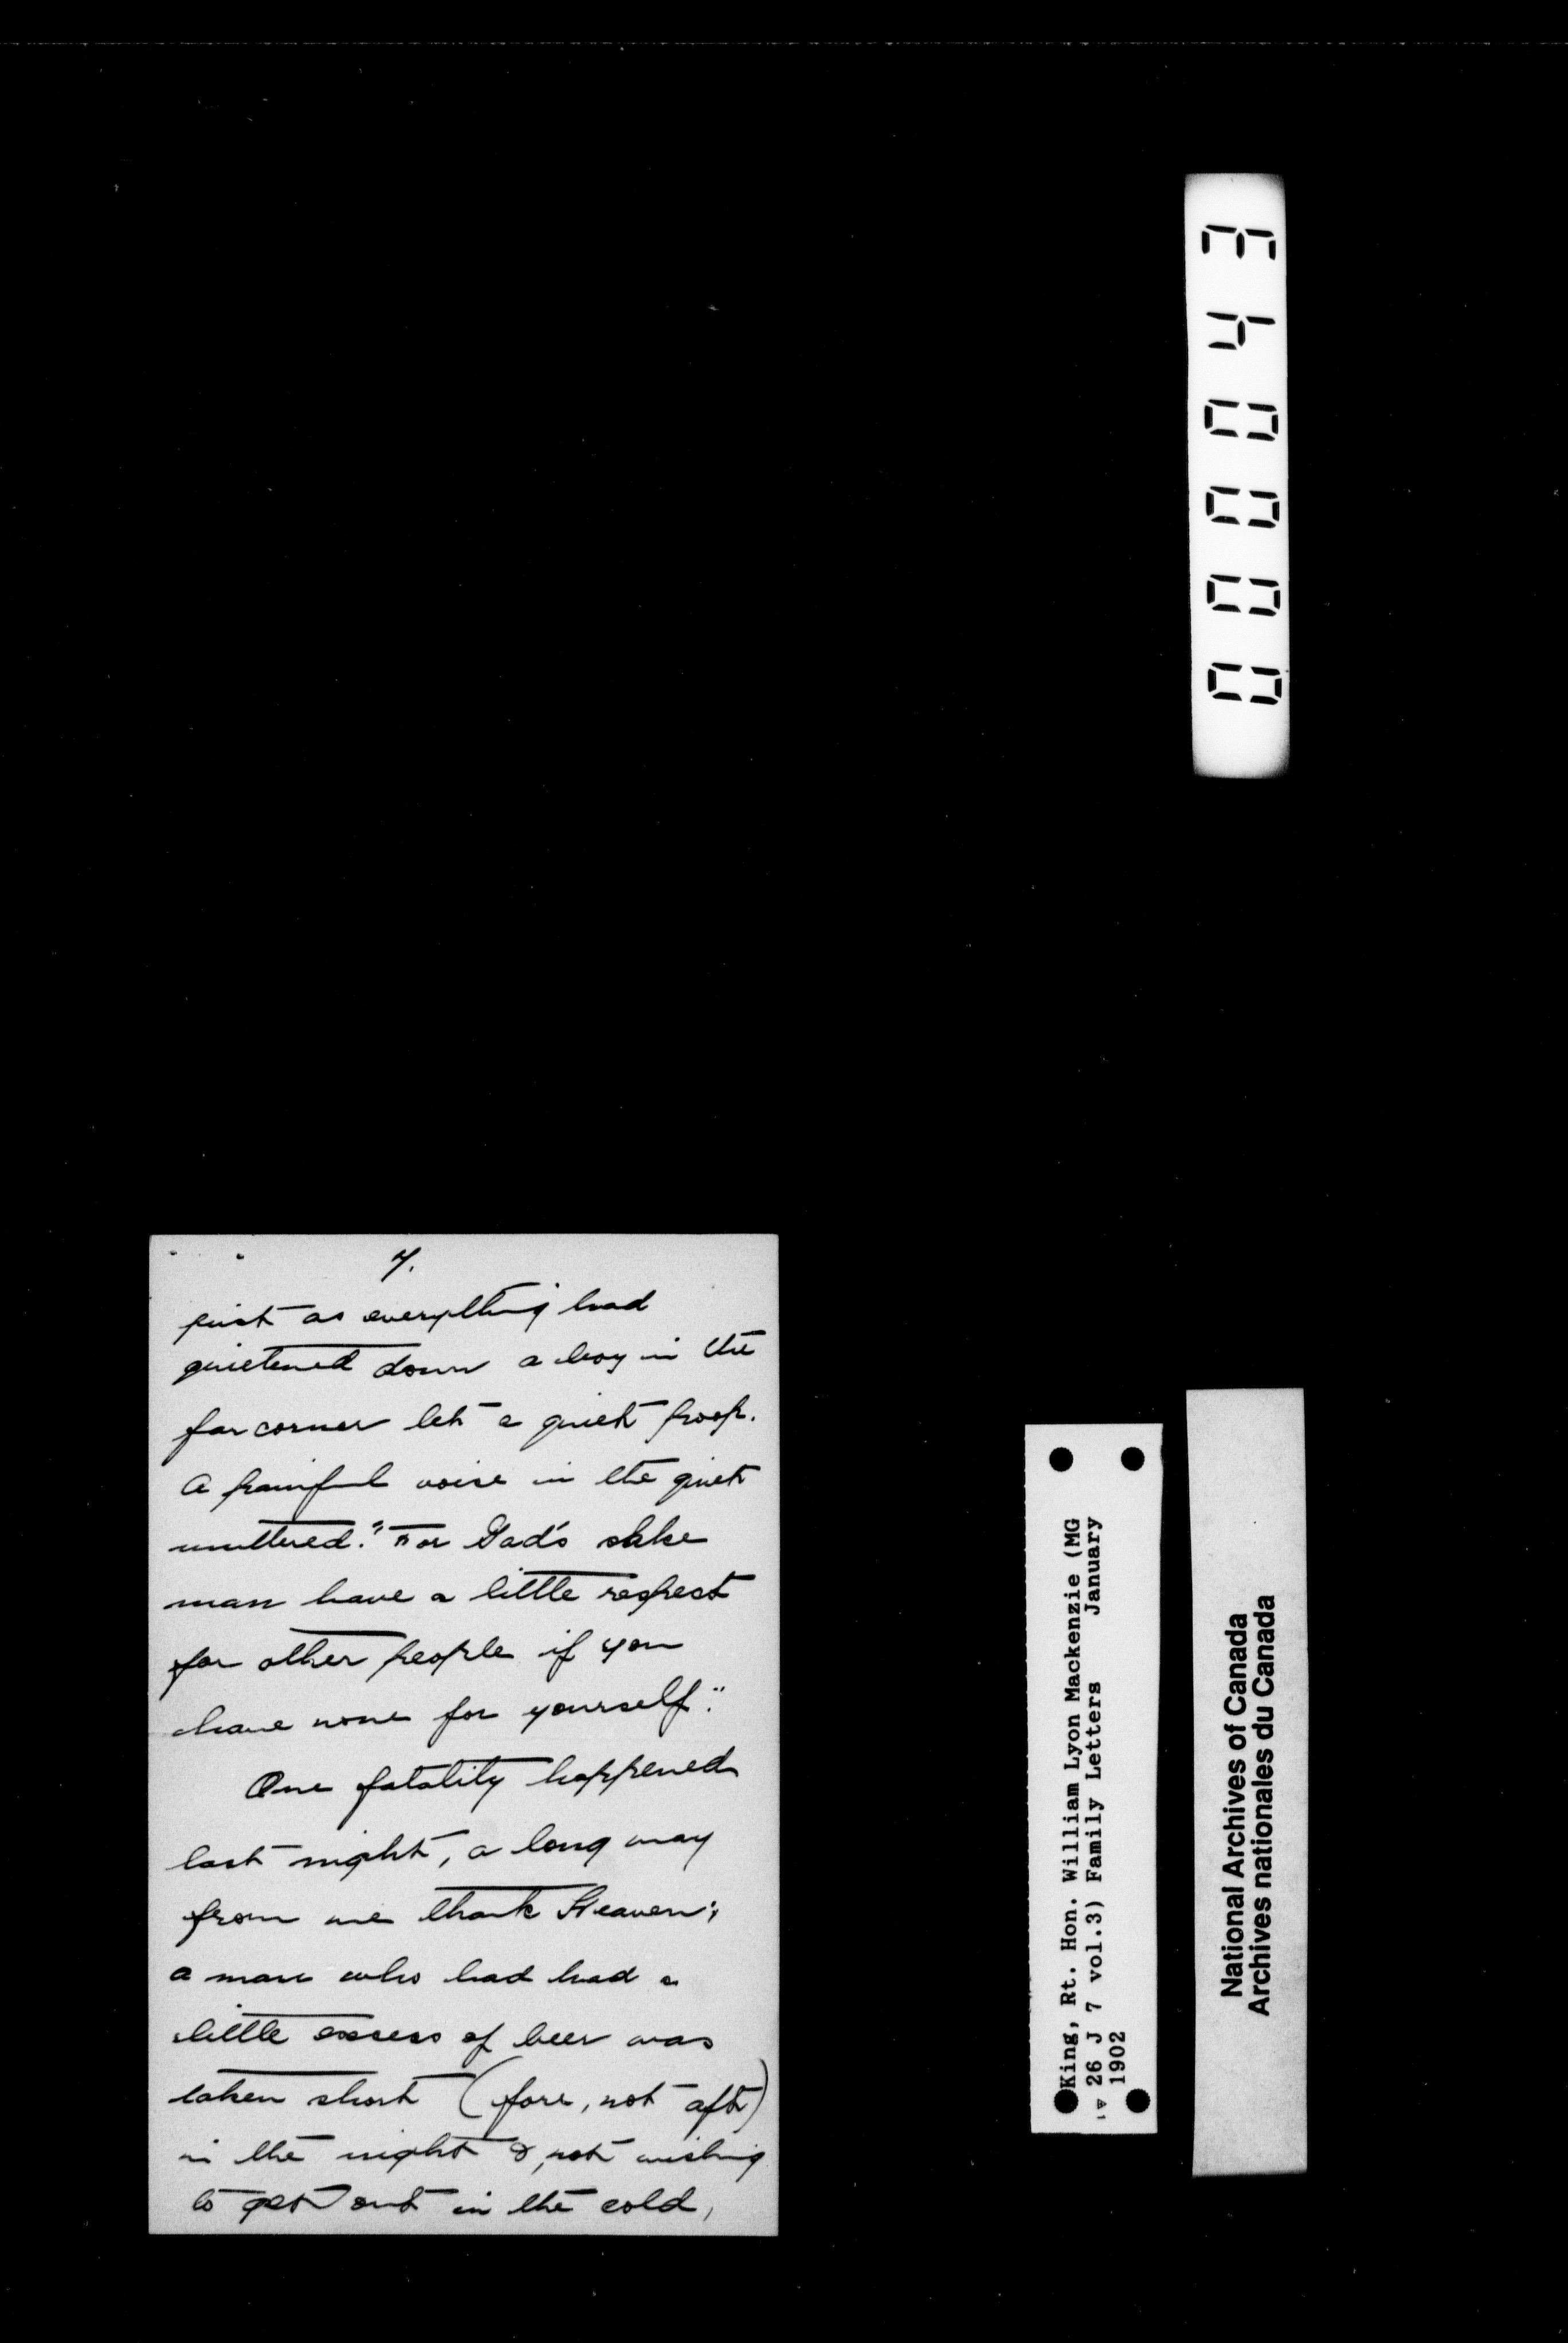 7.
just as everything had
quietened down a boy in the
far corner let a quiet froop.
A painful voice in the quiet
muttered: "For Gad's sake
man have a little respect
for other people if you
have none for yourself."
One fatality happened
last night, a long way
from me thank Heaven;
a man who had had a
little excess of beer was
taken short (fore, not aft)
in the night &, not wishing
to get out in the cold,
King, Rt. Hon. William Lyon Mackenzie (MG
26 J 7 vol.3) Family Letters January
1902
National Archives of Canada
Archives nationales du Canada